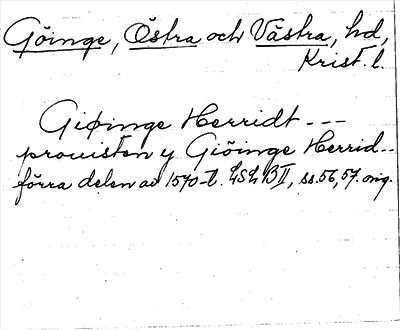 Göinge, Östra och Västra, hd,
Krist. l.
Giøinge Herridt ---
prouisten y Giöinge Herrid--
förra delen av 1570-t. LSL BII, ss. 56, 57. orig.